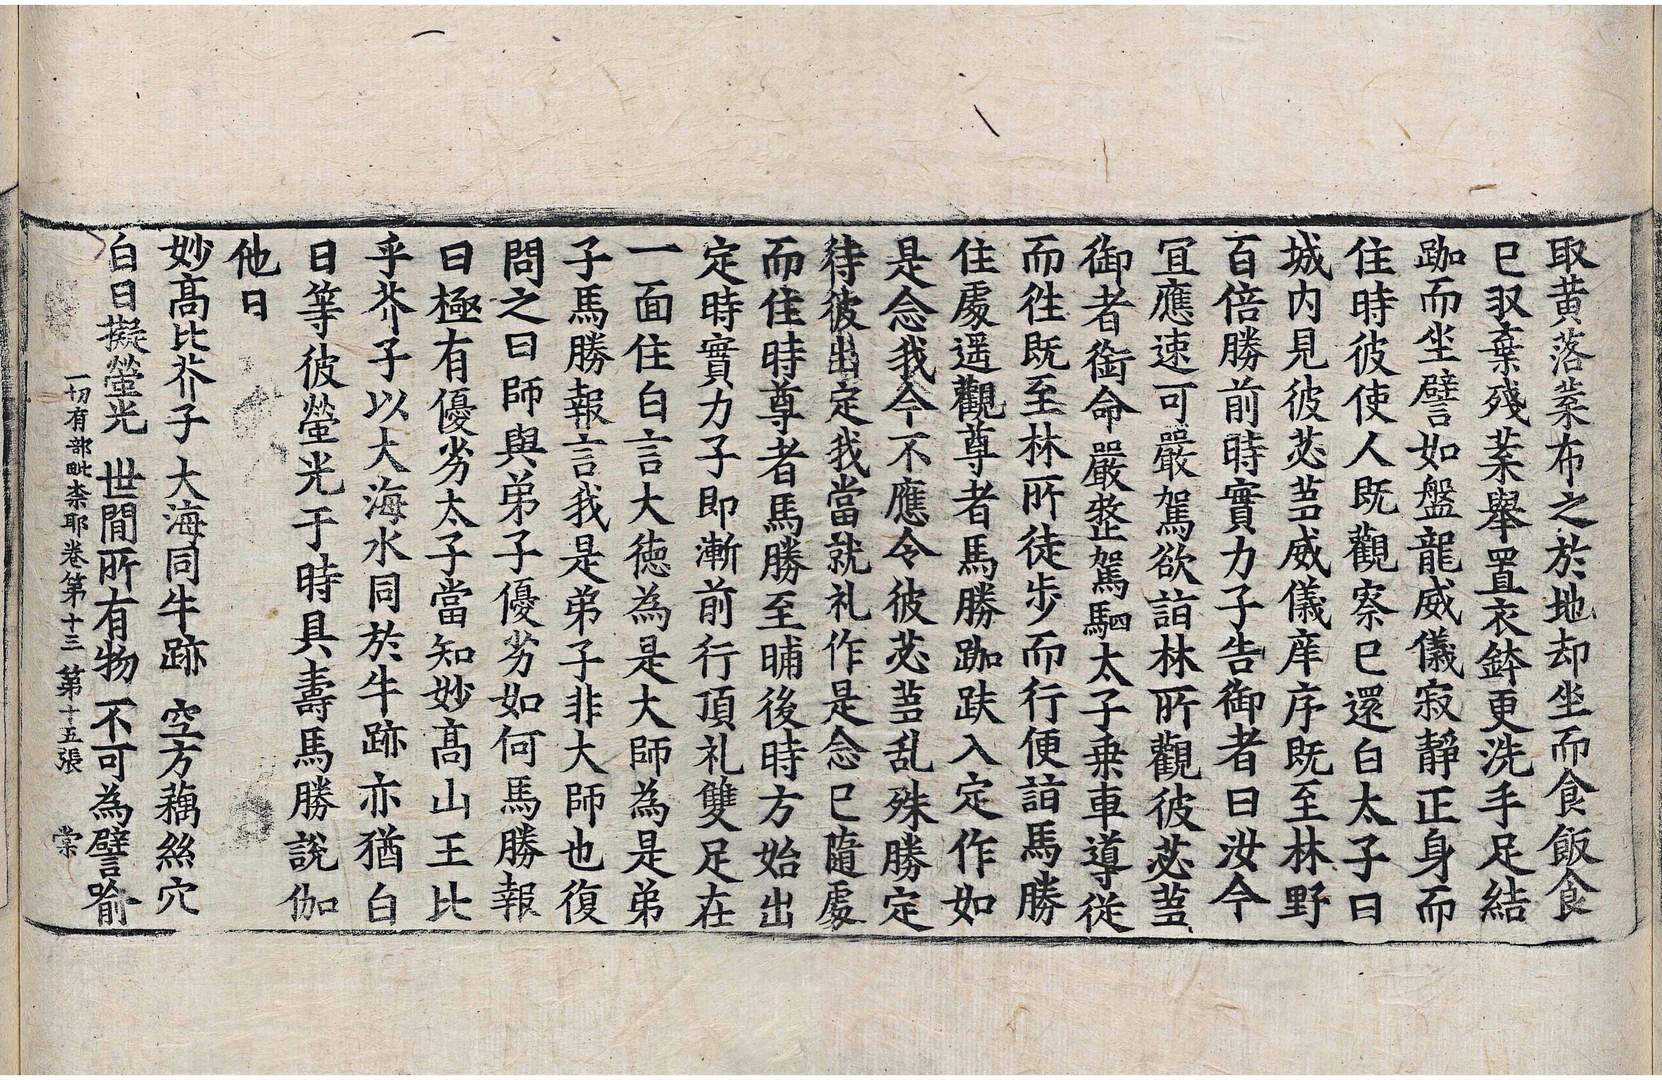 取黃落葉布之於地却坐而食飯食
已収棄殘葉舉置衣鉢更洗手足結
跏而坐譬如盤龍威儀寂靜正身而
住時彼使人既觀察已還白太子曰
城内見彼苾芻威儀庠序既至林野
百倍勝前時實力子告御者曰汝今
冝應速可嚴駕欲詣林所觀彼苾芻
御者銜命嚴整駕駟太子乗車導從
而徃既至林所徒步而行便詣馬勝
住處遥觀尊者馬勝跏趺入定作如
是念我今不應令彼苾芻乱殊勝定
待彼出定我當就礼作是念已隨處
而住時尊者馬勝至晡後時方始出
定時實力子即漸前行頂礼雙足在
一面住白言大德為是大師為是弟
子馬勝報言我是弟子非大師也復
問之曰師與弟子優劣如何馬勝報
曰極有優劣太子當知妙髙山王比
乎芥子以大海水同於牛跡亦猶白
日等彼螢光于時具壽馬勝說伽
他曰
妙髙比芥子 大海同牛跡 空方藕絲穴
白日擬螢光 世間所有物 不可為譬喻
一切有部毗奈耶卷第十三 第十五張 棠